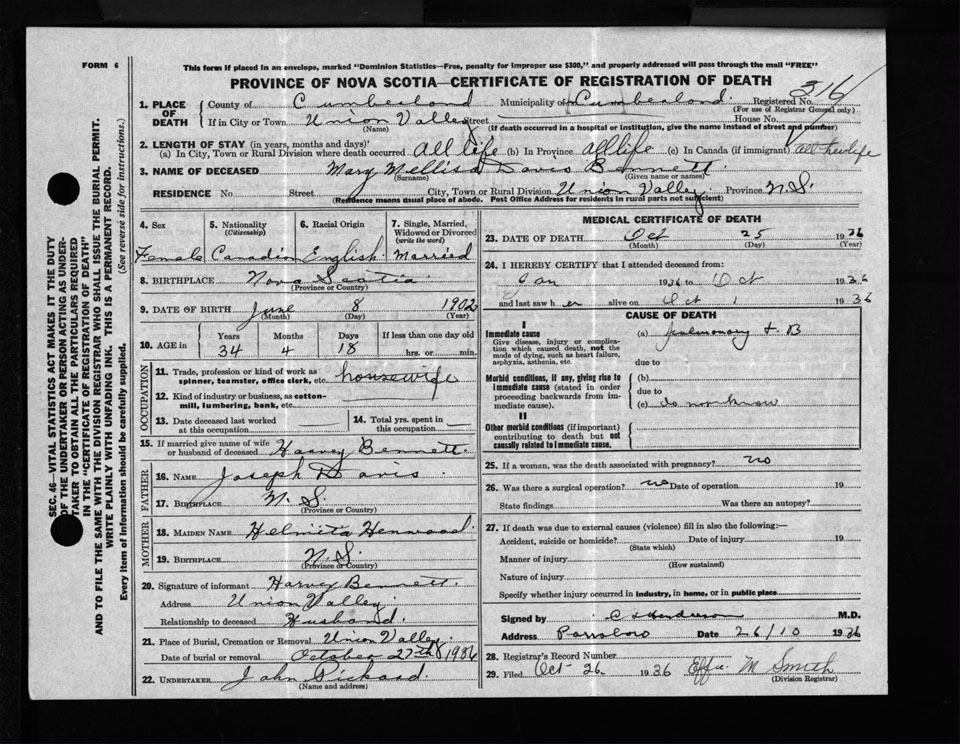 FORM 6
This form if placed in an envelope, marked "Dominion Statistics—Free, penalty for improper use $300," and properly addressed will pass through the mail "FREE"
PROVINCE OF NOVA SCOTIA—CERTIFICATE OF REGISTRATION OF DEATH
316
1. PLACE OF DEATH
County of Cumberland Municipality of Cumberland Registered No.
(For use of Registrar General only)
If in City or Town Union Valley Street House No.
(Name) (If death occurred in a hospital or institution, give the name instead of street and number)
2. LENGTH OF STAY (in years, months and days)
(a) In City, Town or Rural Division where death occurred All life (b) In Province all life (c) In Canada (if immigrant) all her life
3. NAME OF DECEASED Mary Mellisa Davis Bennett.
(Surname) (Given name or names)
RESIDENCE No Street City, Town or Rural Division Union Valley. Province N.S.
(Residence means usual place of abode. Post Office Address for residents in rural parts not sufficient)
4. Sex 5. Nationality (Citizenship) 6. Racial Origin 7. Single, Married, Widowed or Divorced (write the word)
Female Canadian English Married
8. BIRTHPLACE Nova Scotia
(Province or Country)
9. DATE OF BIRTH June 8 1902
(Month) (Day) (Year)
10. AGE in Years Months Days If less than one day old
34 4 18 hrs. or min.
OCCUPATION
11. Trade, profession or kind of work as spinner, teamster, office clerk, etc. housewife
12. Kind of industry or business, as cotton-mill, lumbering, bank, etc.
13. Date deceased last worked at this occupation 14. Total yrs. spent in this occupation
15. If married give name of wife or husband of deceased Harvey Bennett.
FATHER
16. NAME Joseph Davis
17. BIRTHPLACE N.S.
(Province or Country)
MOTHER
18. MAIDEN NAME Henwood.
19. BIRTHPLACE N.S.
(Province or Country)
20. Signature of informant Harvey Bennett.
Address Union Valley.
Relationship to deceased Husband.
21. Place of Burial, Cremation or Removal Union Valley.
Date of burial or removal October 27th 1936
22. UNDERTAKER John Pickard.
(Name and address)
MEDICAL CERTIFICATE OF DEATH
23. DATE OF DEATH Oct 25 1936
(Month) (Day) (Year)
24. I HEREBY CERTIFY that I attended deceased from:
Jan 1936 to Oct 1936
and last saw her alive on Oct 1 1936
CAUSE OF DEATH
I
Immediate cause
Give disease, injury or complication which caused death, not the mode of dying, such as heart failure, asphyxia, asthenia, etc.
(a) pulmonary T.B
due to
Morbid conditions, if any, giving rise to immediate cause (stated in order proceeding backwards from immediate cause).
(b)
due to
(c) do not know
II
Other morbid conditions (if important) contributing to death but not causally related to immediate cause.
25. If a woman, was the death associated with pregnancy? no
26. Was there a surgical operation? no Date of operation 19
State findings Was there an autopsy?
27. If death was due to external causes (violence) fill in also the following:—
Accident, suicide or homicide? Date of injury 19
(State which)
Manner of injury
(How sustained)
Nature of injury
Specify whether injury occurred in industry, in home, or in public place
Signed by Henderson M.D.
Address Parrsboro Date 26/10 1936
28. Registrar's Record Number
29. Filed Oct 26 1936 Effie M Smith
(Division Registrar)
SEC. 46—VITAL STATISTICS ACT MAKES IT THE DUTY
OF THE UNDERTAKER OR PERSON ACTING AS UNDER-
TAKER TO OBTAIN ALL THE PARTICULARS REQUIRED
IN THE "CERTIFICATE OF REGISTRATION OF DEATH"
AND TO FILE THE SAME WITH THE DIVISION REGISTRAR WHO SHALL ISSUE THE BURIAL PERMIT.
WRITE PLAINLY WITH UNFADING INK. THIS IS A PERMANENT RECORD.
Every item of information should be carefully supplied. (See reverse side for instructions.)